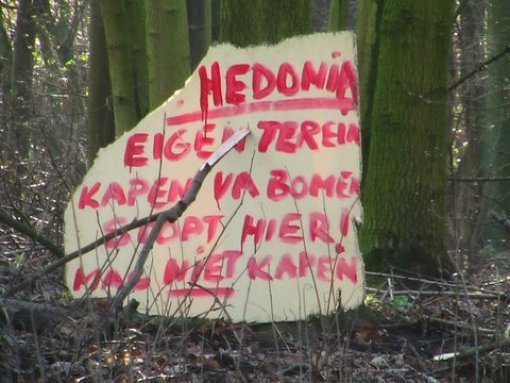 HEDONIA
EIGEN TEREIN
KAPEN VA BOMEN
STOPT HIER!
NIET KAPEN